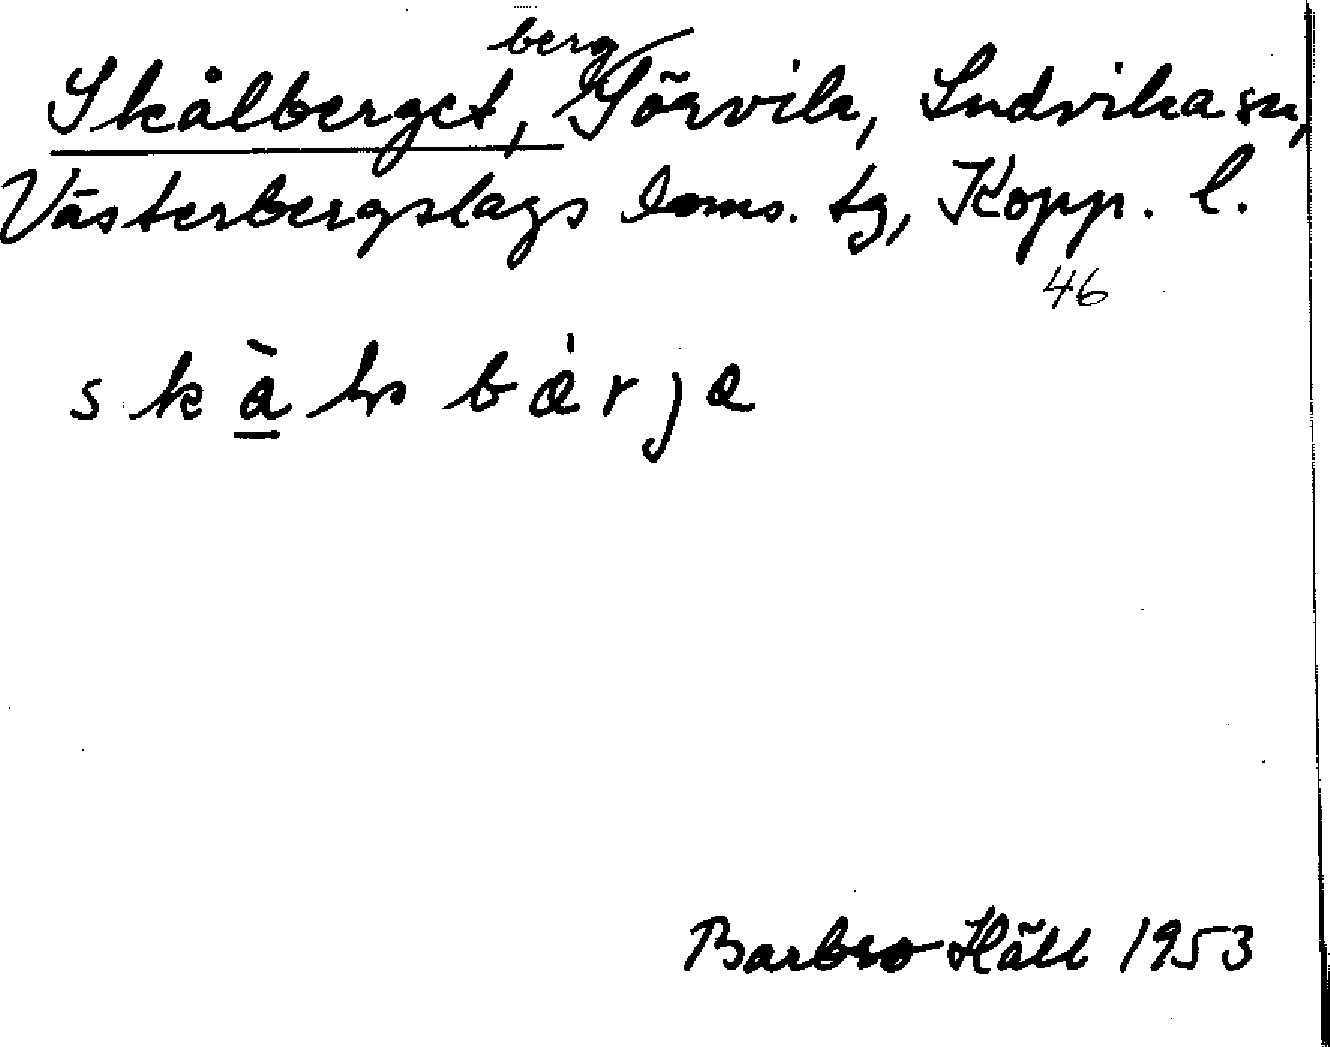 berg
Skålberget, Görvik, Ludvika sn,
Västerbergslags doms. tg, Kopp. l.
46
Barbro Häll 1953